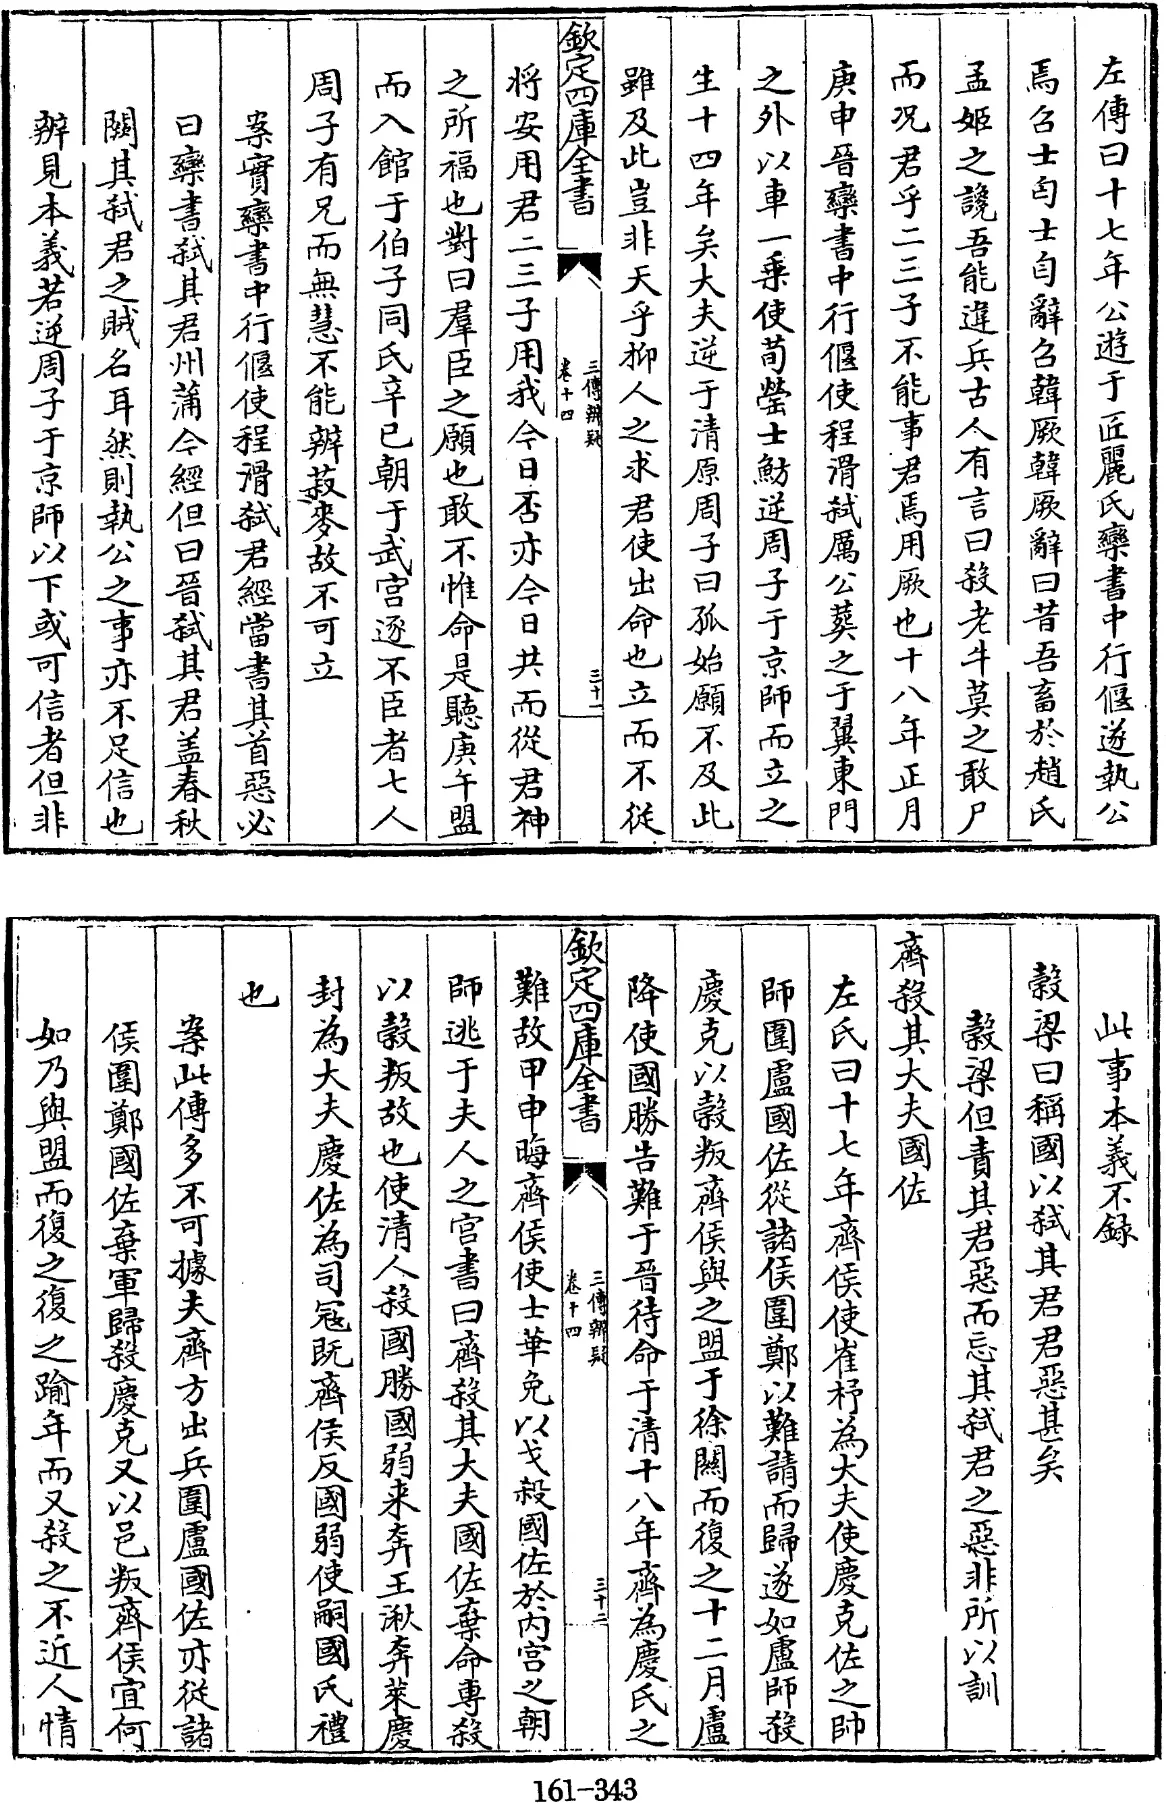 左傳曰十七年公遊于匠麗氏欒書中行偃遂執公
焉召士匄士匄辭召韓厥韓厥辭曰昔吾畜於趙氏
孟姬之讒吾能違兵古人有言曰殺老牛莫之敢尸
而况君乎二三子不能事君焉用厥也十八年正月
庚申晉欒書中行偃使程滑弑厲公葬之于翼東門
之外以車一乗使荀罃士魴逆周子于京師而立之
生十四年矣大夫逆于清原周子曰孤始願不及此
雖及此豈非天乎抑人之求君使出命也立而不從
欽定四庫全書
三傳辨疑
卷十四
三十一
將安用君二三子用我今日否亦今日共而從君神
之所福也對曰羣臣之願也敢不惟命是聽庚午盟
而入館于伯子同氏辛巳朝于武宫逐不臣者七人
周子有兄而無慧不能辨菽麥故不可立
案實欒書中行偃使程滑弑君經當書其首惡必
曰欒書弑其君州蒲今經但曰晉弑其君盖春秋
闕其弑君之賊名耳然則執公之事亦不足信也
辨見本義若逆周子于京師以下或可信者但非
此事本義不録
穀梁曰稱國以弑其君君惡甚矣
穀梁但責其君惡而忘其弑君之惡非所以訓
齊殺其大夫國佐
左氏曰十七年齊侯使崔杼為大夫使慶克佐之帥
師圍盧國佐從諸侯圍鄭以難請而歸遂如盧師殺
慶克以穀叛齊侯與之盟于徐關而復之十二月盧
降使國勝告難于晉待命于清十八年齊為慶氏之
欽定四庫全書
三傳辨疑
卷十四
三十二
難故甲申晦齊侯使士華免以戈殺國佐於内宫之朝
師逃于夫人之宫書曰齊殺其大夫國佐棄命專殺
以穀叛故也使清人殺國勝國弱来奔王湫奔萊慶
封為大夫慶佐為司寇既齊侯反國弱使嗣國氏禮
也
案此傳多不可據夫齊方出兵圍盧國佐亦從諸
侯圍鄭國佐棄軍歸殺慶克又以邑叛齊侯宜何
如乃與盟而復之復之踰年而又殺之不近人情
161-343